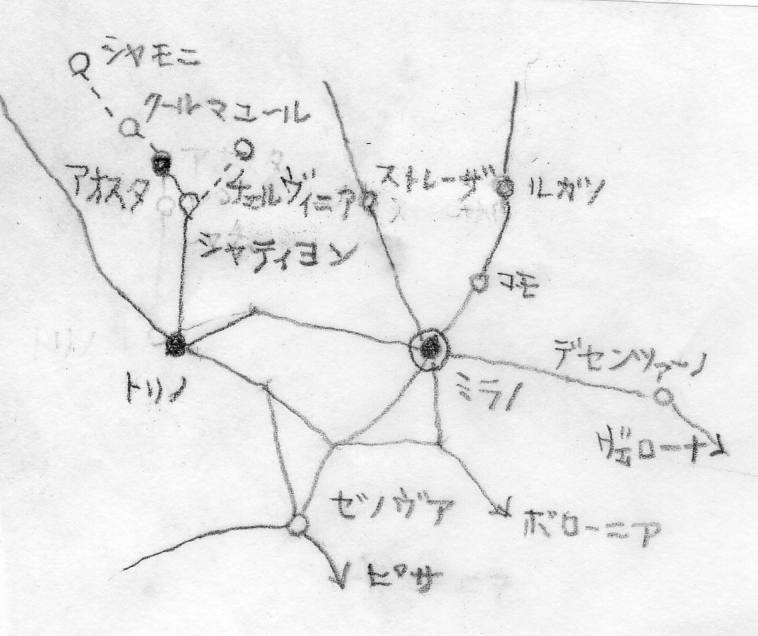 シャモニ
クールマユール
アオスタ
チェルヴィニア
ストレーザ
ルガノ
シャティヨン
コモ
トリノ
ミラノ
デセンツァーノ
ヴェローナ
ゼノヴァ
ボローニア
ピサ